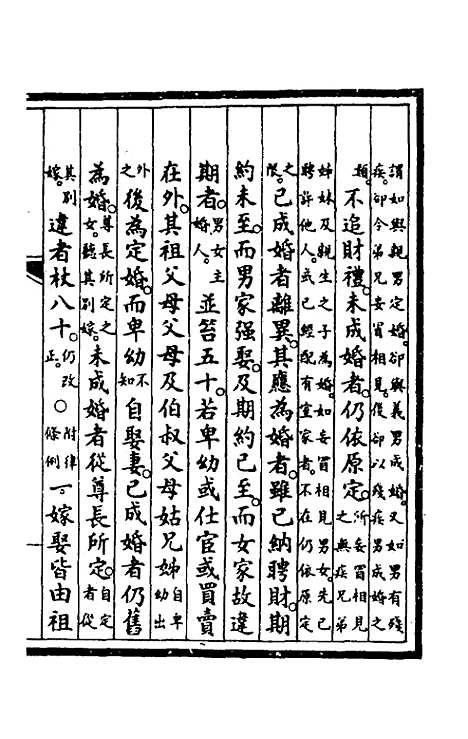 謂如與親男定婚。卻與義男成婚。又如男有殘
疾。卻令弟兄妄冒相見。後卻以殘疾男成婚之
類。不追財禮。未成婚者。仍依原定。所妄冒相見之無疾兄弟
姊妹及親生之子為婚。如妄冒相見男女。先已
聘許他人。或已經配有室家者。不在仍依原定
之限。已成婚者離異。其應為婚者。雖已納聘財。期
約未至。而男家强娶。及期約已至。而女家故違
期者。男女主婚人。並笞五十。若卑幼或仕宦或買賣
在外。其祖父母父母及伯叔父母姑兄姊自卑幼出
外之後為定婚。而卑幼不知自娶妻。已成婚者仍舊
為婚。尊長所定之女。聽其別嫁。未成婚者從尊長所定。自定者從
其別嫁。違者杖八十。仍改正。○附律條例一。嫁娶皆由祖